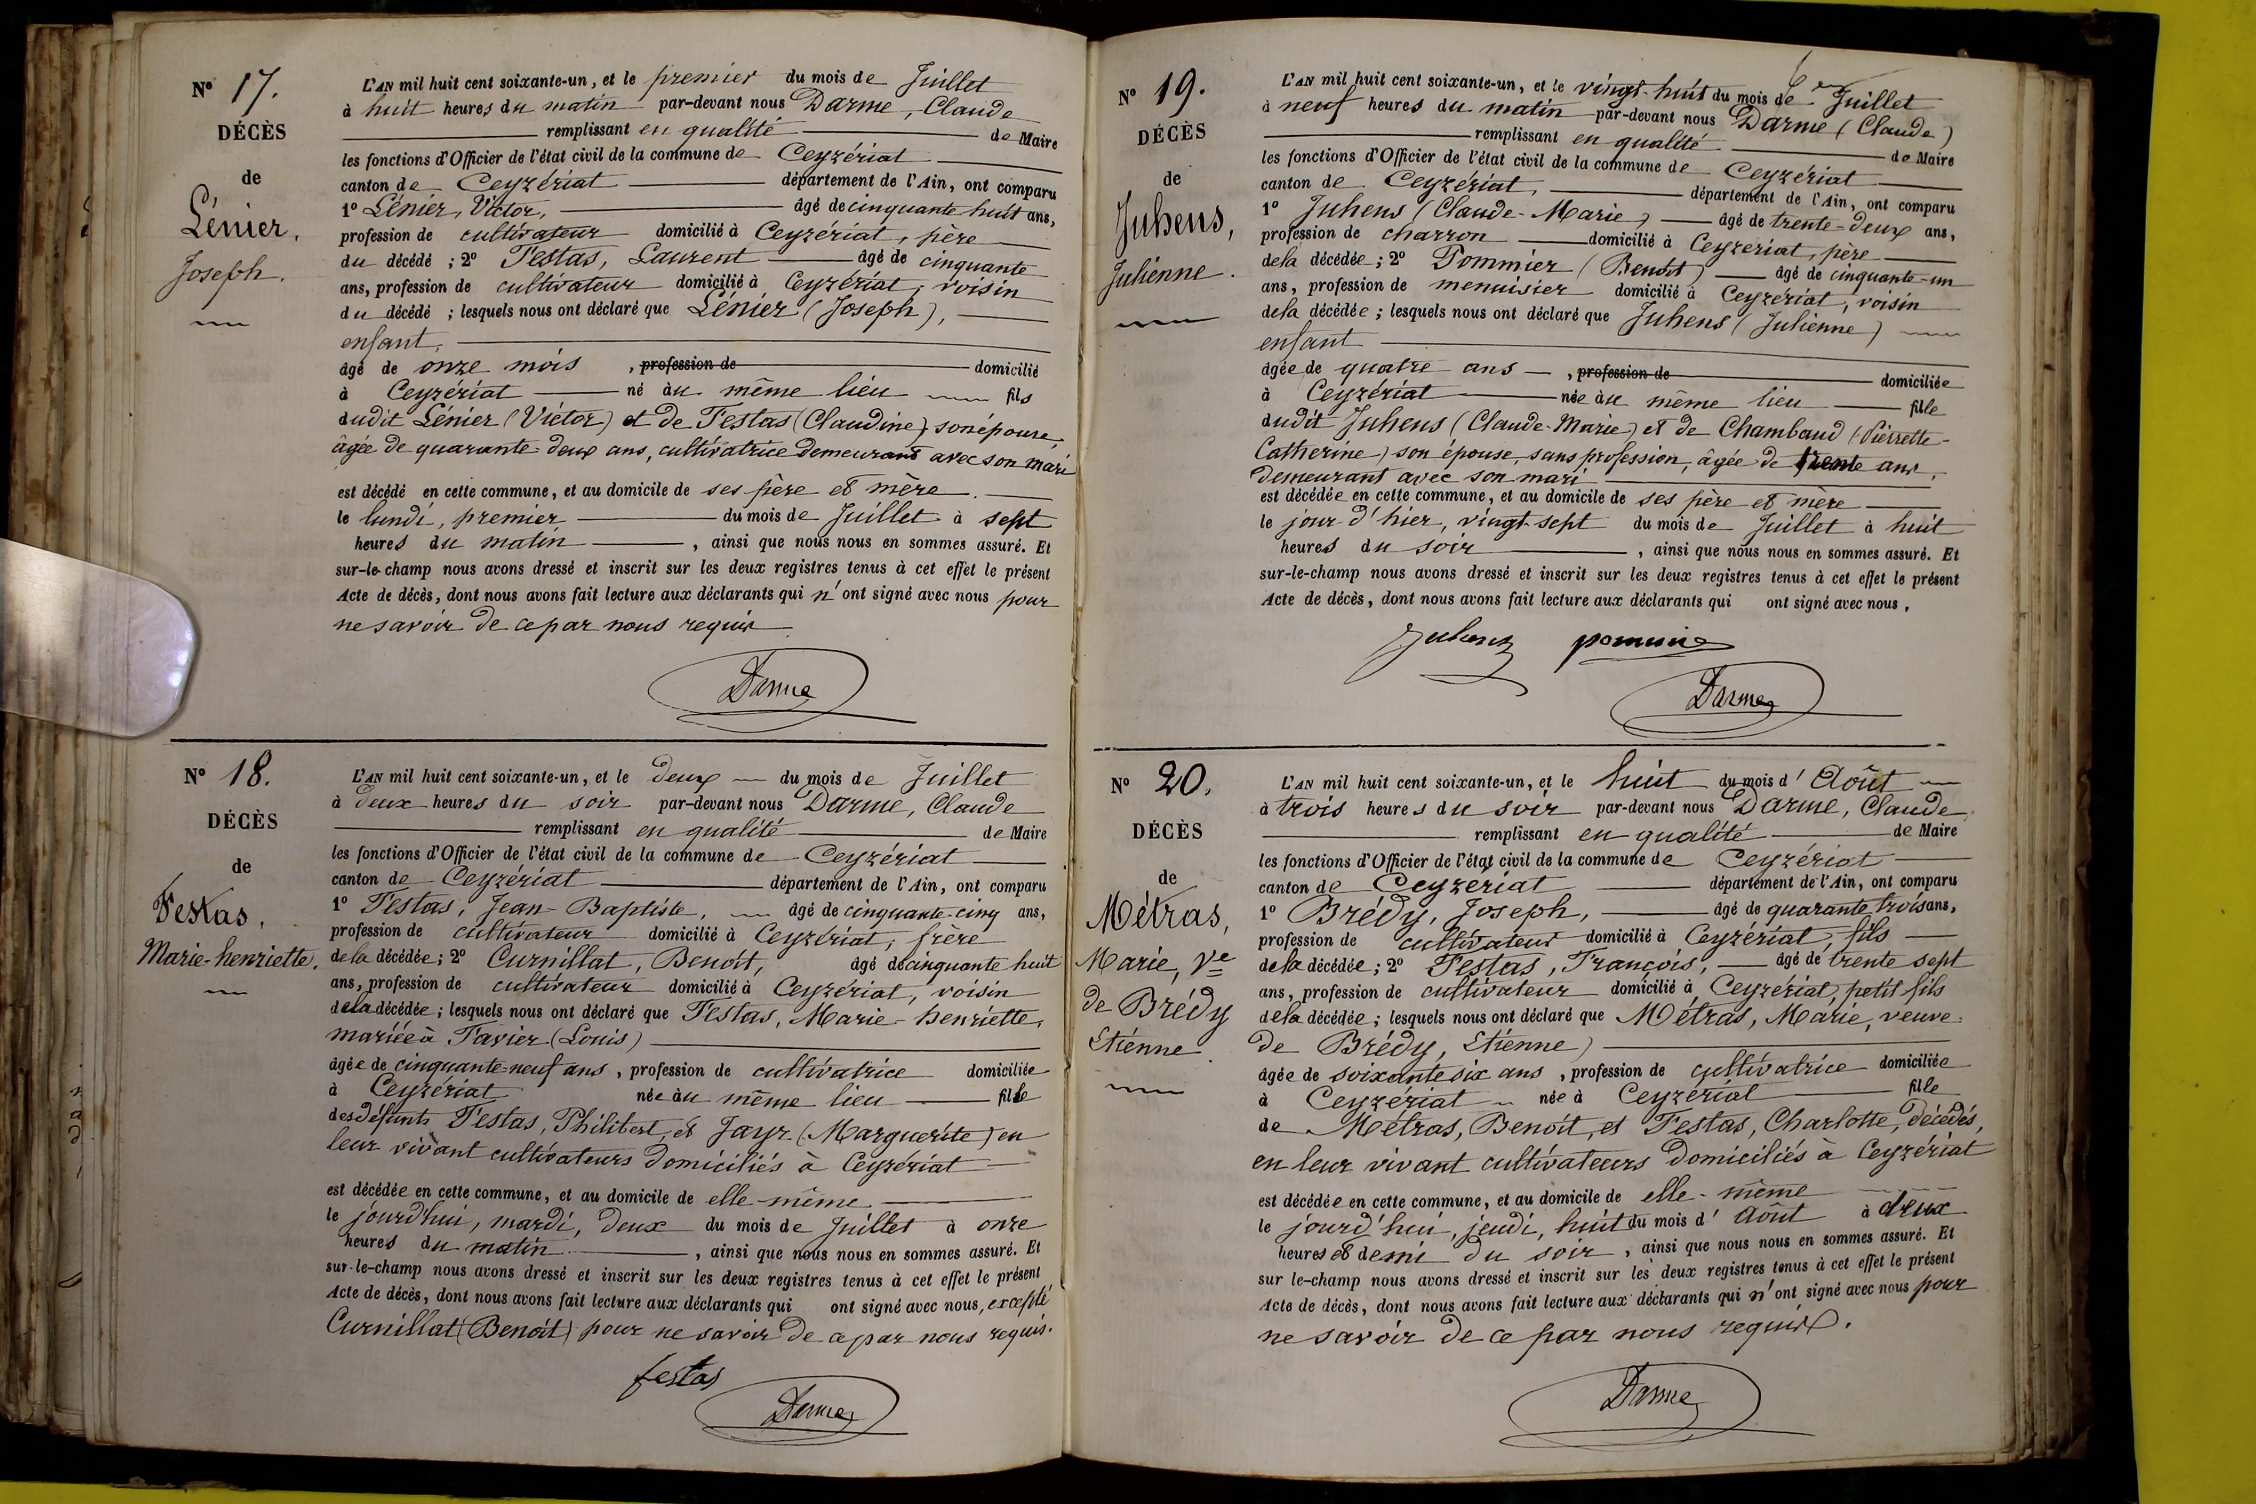 N° 17.
DÉCÈS
de
Lénier,
Joseph.
L'AN mil huit cent soixante-un, et le premier du mois de Juillet
à huit heures du matin par-devant nous Darme, Claude
remplissant en qualité de Maire
les fonctions d'Officier de l'état civil de la commune de Ceyzériat
canton de Ceyzériat département de l'Ain, ont comparu
1° Lénier, Victor, âgé de cinquante-huit ans,
profession de cultivateur domicilié à Ceyzériat, père
du décédé ; 2° Festas, Laurent âgé de cinquante
ans, profession de cultivateur domicilié à Ceyzériat, voisin
du décédé ; lesquels nous ont déclaré que Lénier (Joseph),
enfant,
âgé de onze mois , profession de domicilié
à Ceyzériat né au même lieu fils
dudit Lénier (Victor) et de Festas (Claudine) son épouse
âgée de quarante-deux ans, cultivatrice demeurant avec son mari
est décédé en cette commune, et au domicile de ses père et mère.
le lundi, premier du mois de Juillet à sept
heures du matin , ainsi que nous nous en sommes assuré. Et
sur-le-champ nous avons dressé et inscrit sur les deux registres tenus à cet effet le présent
Acte de décès, dont nous avons fait lecture aux déclarants qui n'ont signé avec nous pour
ne savoir de ce par nous requis
Darme
N° 18.
DÉCÈS
de
Festas,
Marie-henriette.
L'AN mil huit cent soixante-un, et le deux du mois de Juillet
à deux heures du soir par-devant nous Darme, Claude
remplissant en qualité de Maire
les fonctions d'Officier de l'état civil de la commune de Ceyzériat
canton de Ceyzériat département de l'Ain, ont comparu
1° Festas, Jean-Baptiste, âgé de cinquante-cinq ans,
profession de cultivateur domicilié à Ceyzériat, frère
de la décédée ; 2° Curnillat, Benoit, âgé de cinquante huit
ans, profession de cultivateur domicilié à Ceyzériat, voisin
de la décédée ; lesquels nous ont déclaré que Festas, Marie-henriette,
mariée à Favier (Louis)
âgée de cinquante-neuf ans , profession de cultivatrice domiciliée
à Ceyzériat née au même lieu fille
des défunts Festas, Philibert, et Jayr (Marguerite) en
leur vivant cultivateurs domiciliés à Ceyzériat
est décédée en cette commune, et au domicile de elle-même
le jourd'hui, mardi, deux du mois de Juillet à onze
heures du matin , ainsi que nous nous en sommes assuré. Et
sur-le-champ nous avons dressé et inscrit sur les deux registres tenus à cet effet le présent
Acte de décès, dont nous avons fait lecture aux déclarants qui ont signé avec nous, excepté
Curnillat (Benoit) pour ne savoir de ce par nous requis.
festas
Darme
N° 19.
DÉCÈS
de
Juhens,
Julienne.
L'AN mil huit cent soixante-un, et le vingt-huit du mois de Juillet
à neuf heures du matin par-devant nous Darme (Claude)
remplissant en qualité de Maire
les fonctions d'Officier de l'état civil de la commune de Ceyzériat
canton de Ceyzériat, département de l'Ain, ont comparu
1° Juhens (Claude-Marie) âgé de trente-deux ans,
profession de charron domicilié à Ceyzériat, père
de la décédée ; 2° Pommier (Benoit) âgé de cinquante-un
ans, profession de menuisier domicilié à Ceyzériat, voisin
de la décédée ; lesquels nous ont déclaré que Juhens (Julienne)
enfant
âgée de quatre ans , profession de domiciliée
à Ceyzériat née au même lieu fille
dudit Juhens (Claude-Marie) et de Chambaud (Pierrette-
Catherine) son épouse, sans profession, âgée de trente ans,
demeurant avec son mari
est décédée en cette commune, et au domicile de ses père et mère
le jour d'hier, vingt-sept du mois de Juillet à huit
heures du soir , ainsi que nous nous en sommes assuré. Et
sur-le-champ nous avons dressé et inscrit sur les deux registres tenus à cet effet le présent
Acte de décès, dont nous avons fait lecture aux déclarants qui ont signé avec nous.
Juhens pommier
Darme
N° 20.
DÉCÈS
de
Métras,
Marie, Ve
de Brédy
Etienne.
L'AN mil huit cent soixante-un, et le huit du mois d'Août
à trois heures du soir par-devant nous Darme, Claude
remplissant en qualité de Maire
les fonctions d'Officier de l'état civil de la commune de Ceyzériat
canton de Ceyzériat département de l'Ain, ont comparu
1° Brédy, Joseph, âgé de quarante trois ans,
profession de cultivateur domicilié à Ceyzériat, fils
de la décédée ; 2° Festas, François, âgé de trente sept
ans, profession de cultivateur domicilié à Ceyzériat, petit fils
de la décédée ; lesquels nous ont déclaré que Métras, Marie, veuve
de Brédy, Etienne)
âgée de soixante six ans , profession de cultivatrice domiciliée
à Ceyzériat née à Ceyzériat fille
de Métras, Benoit, et Festas, Charlotte, décédés,
en leur vivant cultivateurs domiciliés à Ceyzériat
est décédée en cette commune, et au domicile de elle-même
le jourd'hui, jeudi, huit du mois d'Août à deux
heures et demi du soir , ainsi que nous nous en sommes assuré. Et
sur le-champ nous avons dressé et inscrit sur les deux registres tenus à cet effet le présent
Acte de décès, dont nous avons fait lecture aux déclarants qui n'ont signé avec nous pour
ne savoir de ce par nous requis.
Darme